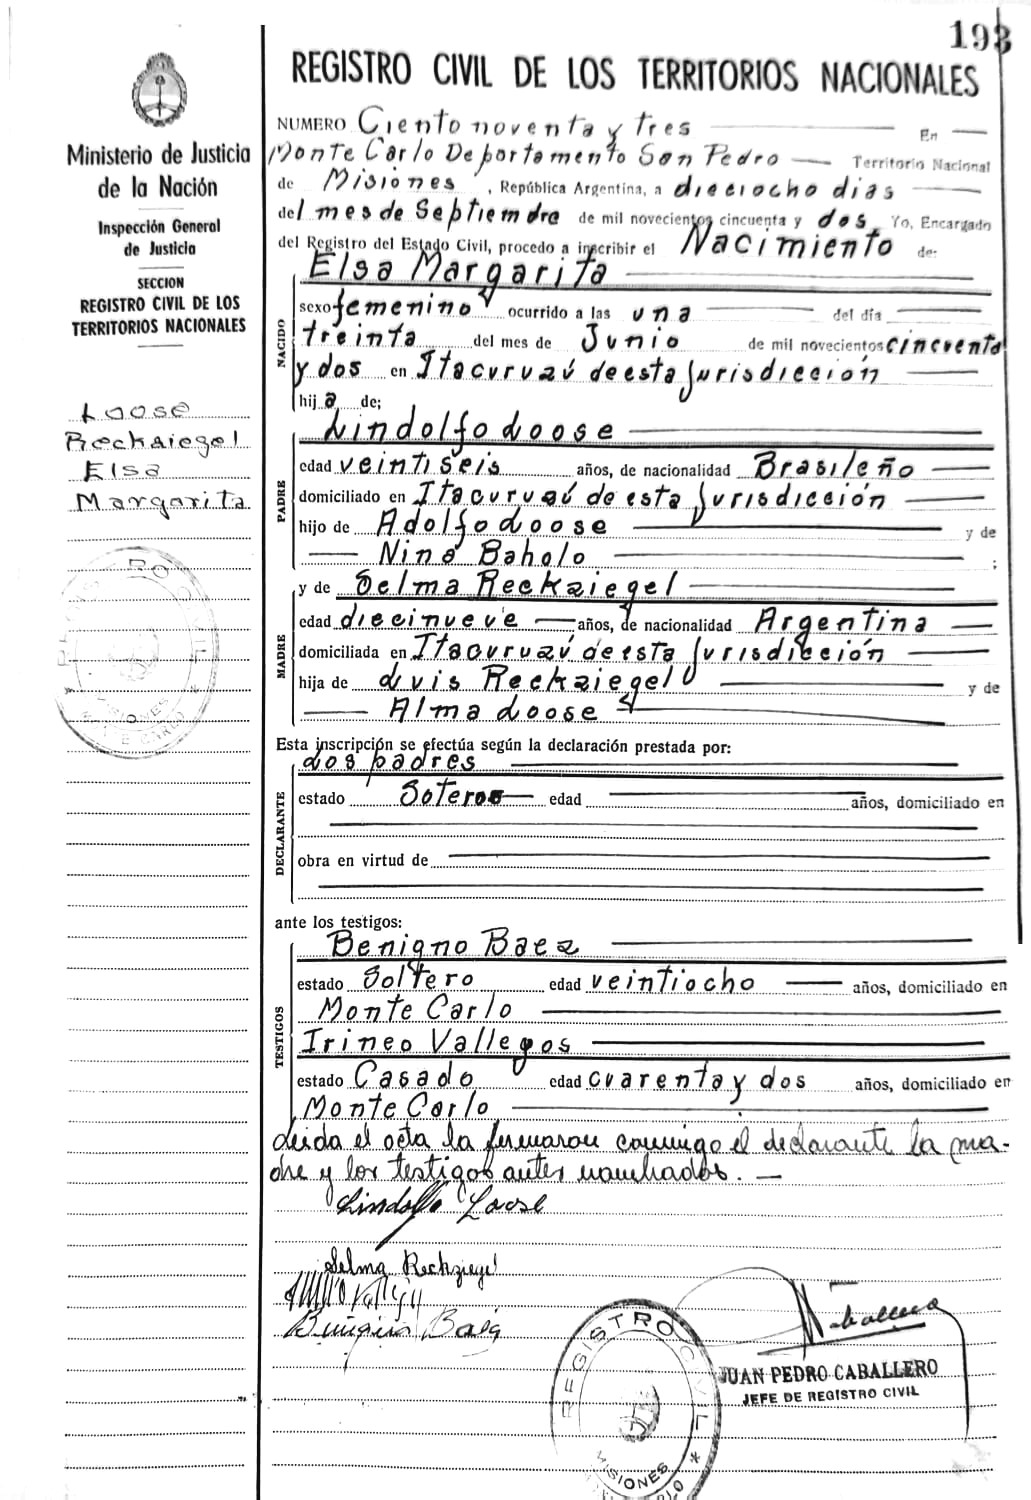 193
REGISTRO CIVIL DE LOS TERRITORIOS NACIONALES
Ministerio de Justicia
de la Nación
Inspección General
de Justicia
SECCION
REGISTRO CIVIL DE LOS
TERRITORIOS NACIONALES
Loose
Reckziegel
Elsa
Margarita
NUMERO Ciento noventa y tres En
Monte Carlo Departamento San Pedro Territorio Nacional
de Misiones, República Argentina, a dieciocho dias
del mes de Septiembre de mil novecientos cincuenta y dos Yo, Encargado
del Registro del Estado Civil, procedo a inscribir el Nacimiento de:
NACIDO
Elsa Margarita
sexo femenino ocurrido a las una del día
treinta del mes de Junio de mil novecientos cincuenta
y dos en Itacuruzú de esta Jurisdicción
hija de;
PADRE
Lindolfo Loose
edad veintiseis años, de nacionalidad Brasileño
domiciliado en Itacuruzú de esta Jurisdicción
hijo de Adolfo Loose y de
Nina Baholo ;
y de Selma Reckziegel
MADRE
edad diecinueve años, de nacionalidad Argentina
domiciliada en Itacuruzú de esta Jurisdicción
hija de Luis Reckziegel y de
Alma Loose
Esta inscripción se efectúa según la declaración prestada por:
DECLARANTE
Los padres
estado Soteros edad años, domiciliado en
obra en virtud de
ante los testigos:
TESTIGOS
Benigno Baez
estado Soltero edad veintiocho años, domiciliado en
Monte Carlo
Irineo Vallegos
estado Casado edad cuarenta y dos años, domiciliado en
Monte Carlo
Leida el acta la firmaron conmigo el declarante la ma-
dre y los testigos antes nombrados.
Lindolfo Loose
Selma Reckziegel
Benigno Baez
Caballero
JUAN PEDRO CABALLERO
JEFE DE REGISTRO CIVIL
REGISTRO CIVIL *
MISIONES